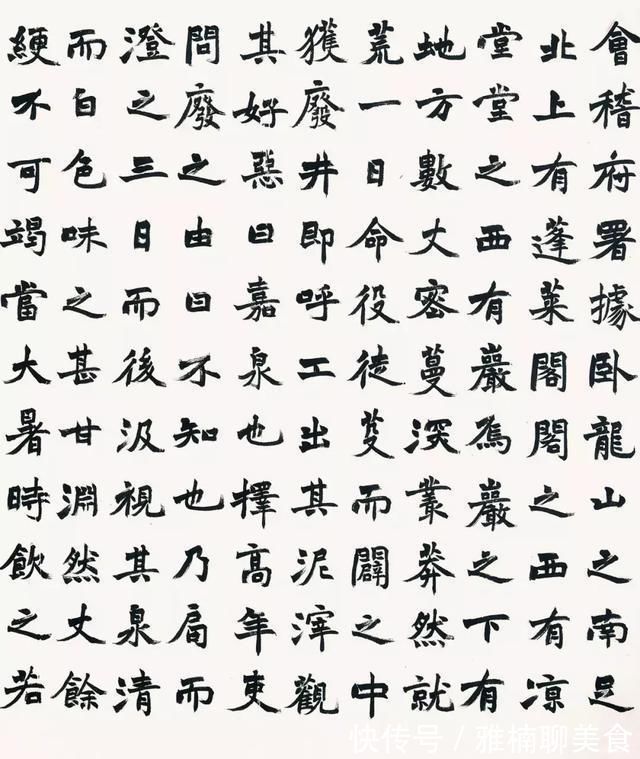 會稽府署據卧龍山之南足
北上有蓬萊閣閣之西有凉
堂堂之西有巖焉巖之下有
地方數丈密蔓深叢莽然就
荒一日命役徒芟而闢之中
獲廢井即呼工出其泥滓觀
其好惡曰嘉泉也擇高年吏
問廢之由曰不知也乃扃而
澄之三日而後汲視其泉清
而白色味之甚甘淵然丈餘
綆不可竭當大暑時飲之若
快传号 / 雅楠聊美食